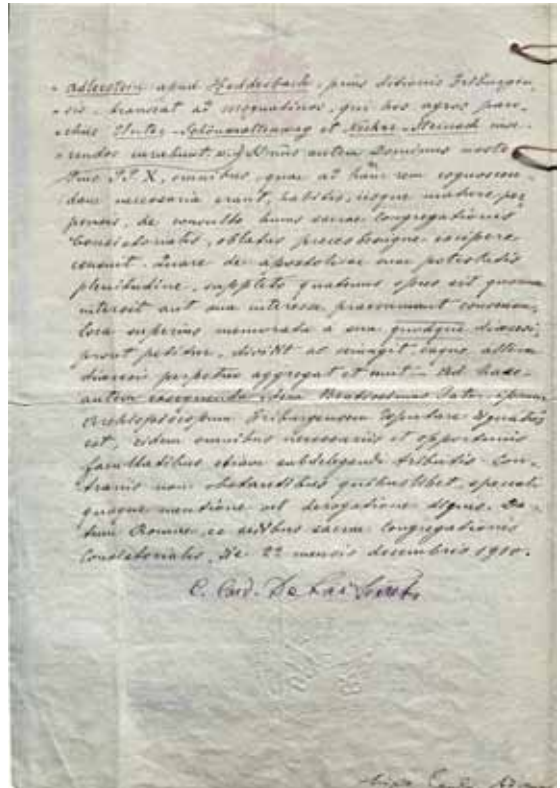 " Adlerstein apud Heddesbach, prius ditionis Friburgen-
" sis, transeat ad Moguntinos, qui hos agros paro-
" chiis Unter-Schönmattenwag et Neckar-Steinach inse-
rendos curabunt. SSmus autem Dominus noster
Pius PP. X, omnibus, quae ad hanc rem cognoscen-
dam necessaria erant, habitis, iisque mature per
pensis, de consulto huius sacrae Congregationis
Consistorialis, oblatas preces benigne excipere
censuit. Quare de apostolicae suae potestatis
plenitudine, suppleto quatenus opus sit quorum
intersit aut sua interesse praesumant consensu,
loca superius memorata a sua quodque dioecesi
prout petitur, dividit ac seiungit, eaque alteri
dioecesi perpetuo aggregat et unit. - Ad haec
autem exsequenda idem Beatissimus Pater, ipsum
Archiepiscopum Friburgensem deputare dignatus
est, eidem omnibus necessariis et opportunis
facultatibus etiam subdelegandi tributis. Con-
trariis non obstantibus quibuslibet, speciali
quoque mentione vel derogatione dignis. Da-
tum Romae, ex aedibus sacrae Congregationis
Consistorialis, die 22 mensis decembris 1910.
C. Card. De Lai Secret.